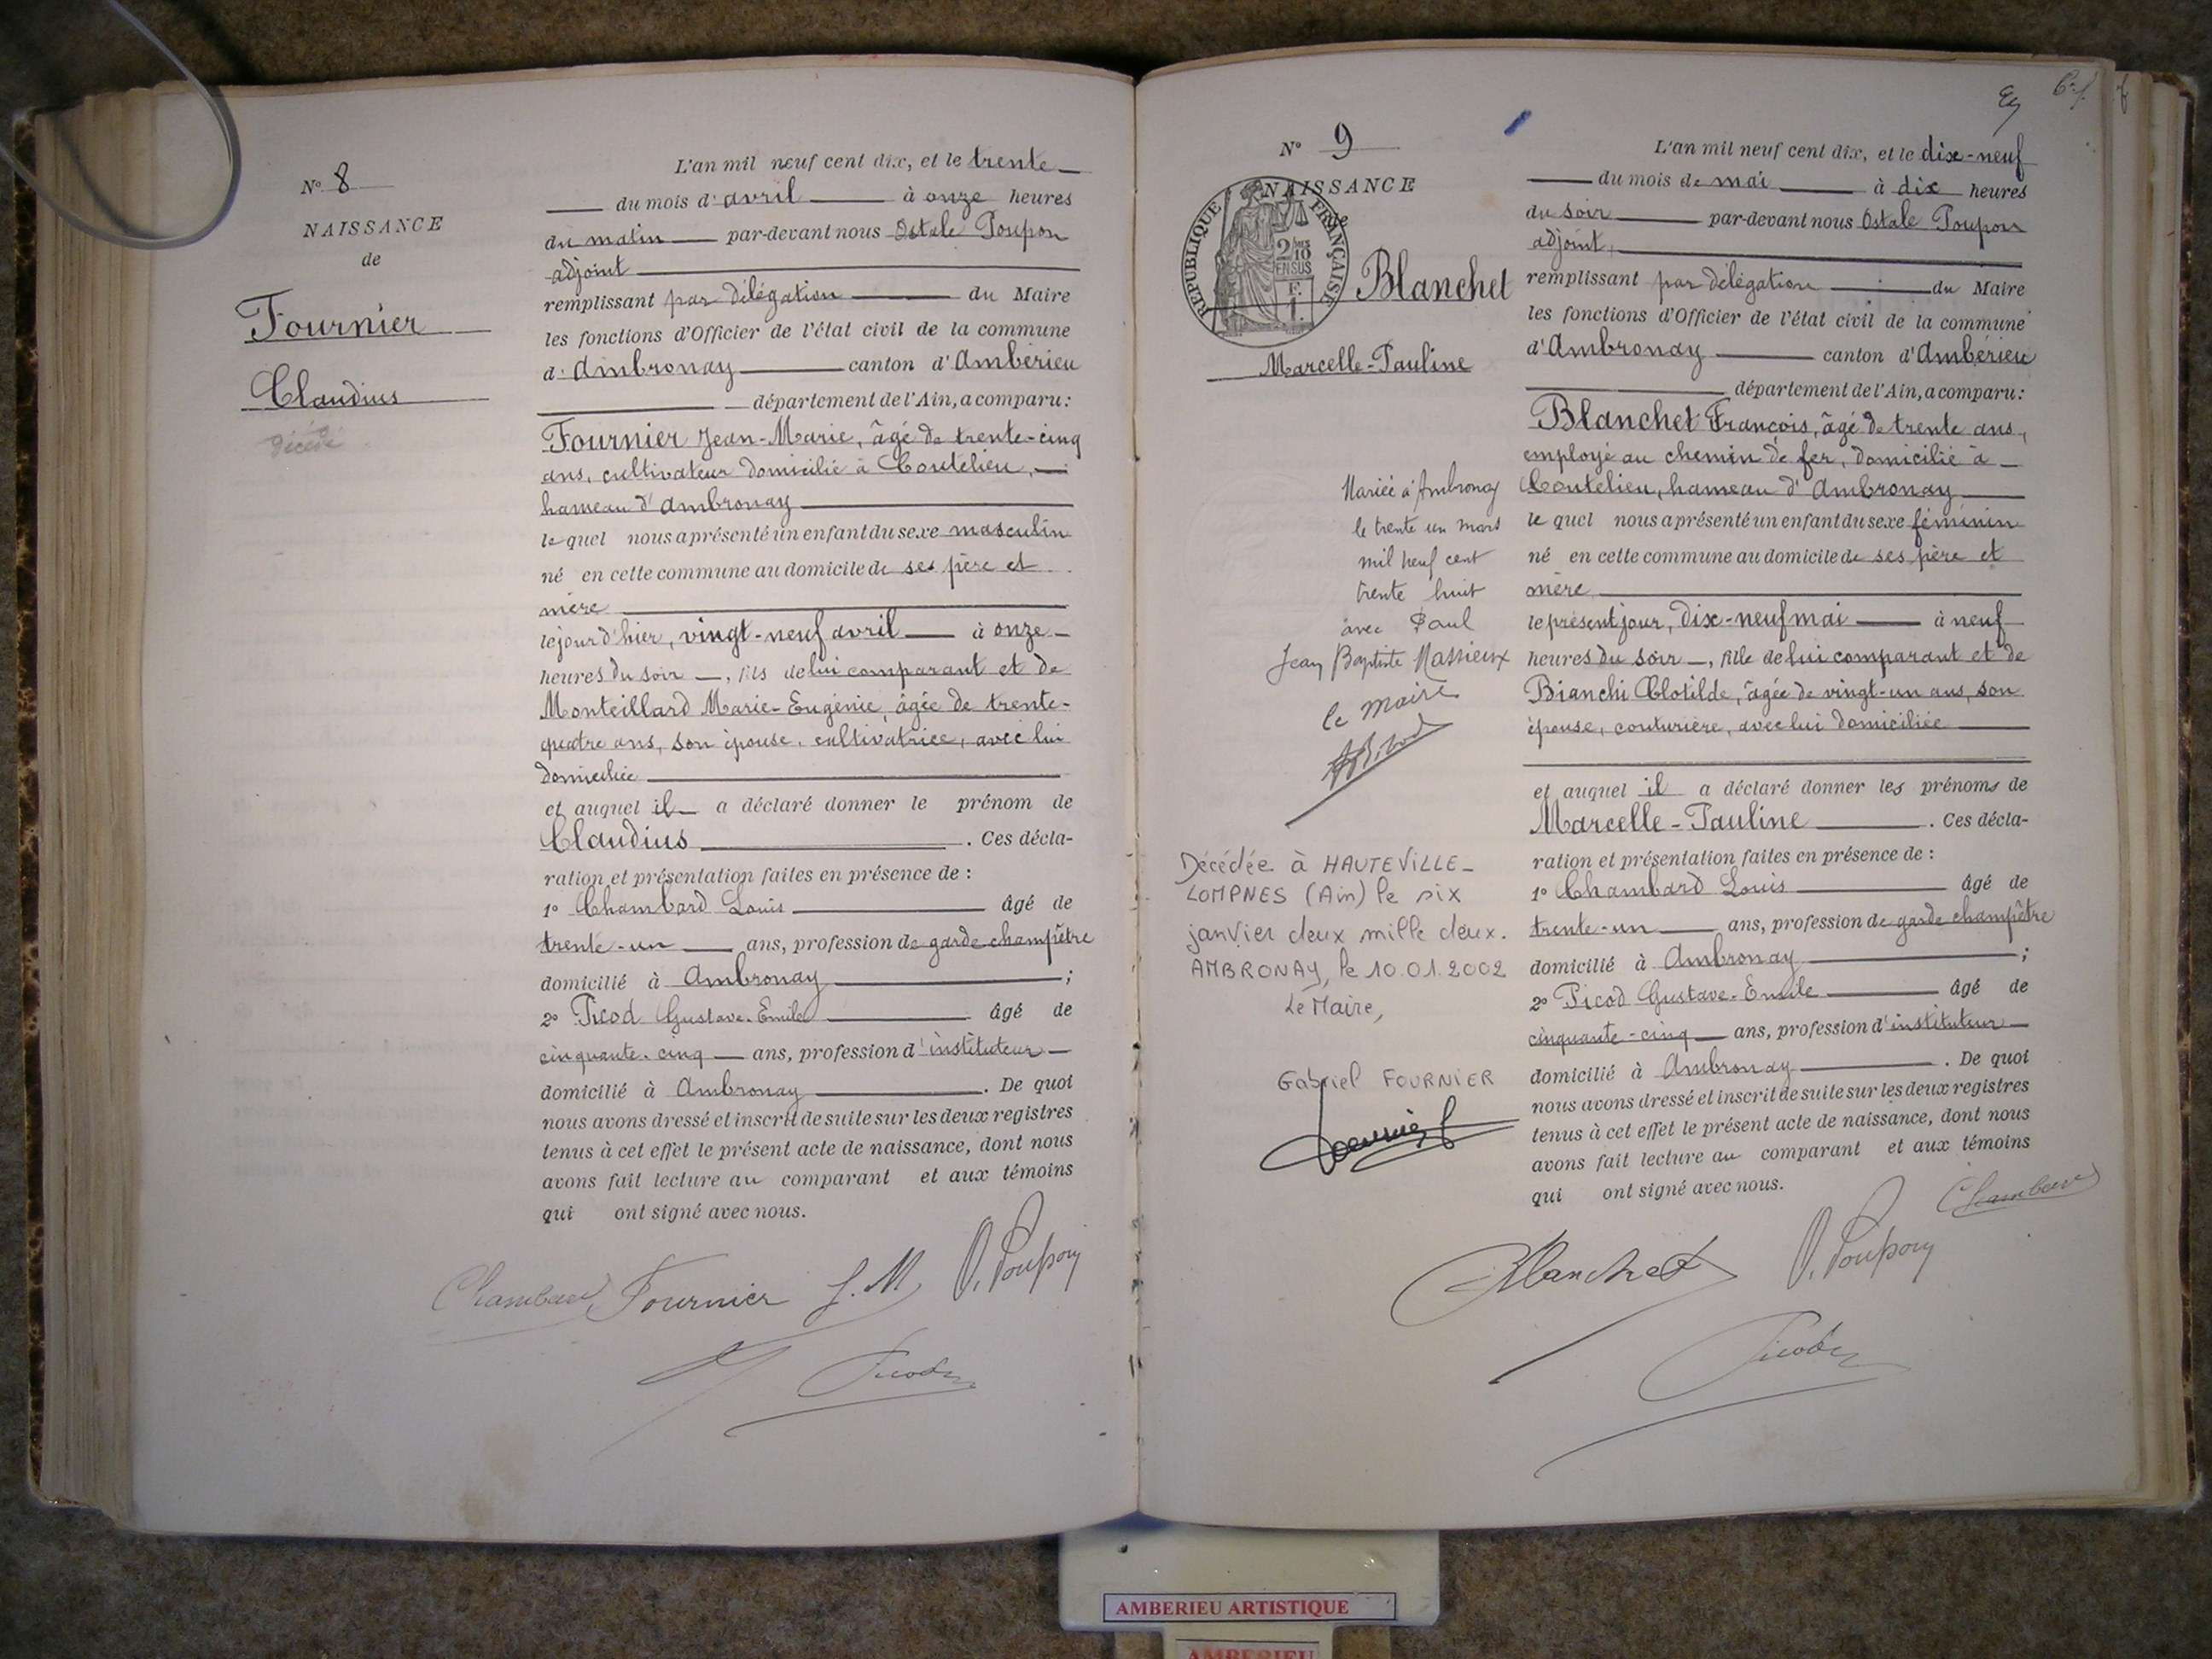 N° 8
NAISSANCE
de
Fournier
Claudius
décédé
L'an mil neuf cent dix, et le trente
du mois d'avril à onze heures
du matin par-devant nous Ostale Poupon
adjoint
remplissant par délégation du Maire
les fonctions d'Officier de l'état civil de la commune
d'Ambronay canton d'Ambérieu
département de l'Ain, a comparu:
Fournier Jean-Marie, âgé de trente-cinq
ans, cultivateur domicilié à Coutelieu,
hameau d'Ambronay
lequel nous a présenté un enfant du sexe masculin
né en cette commune au domicile de ses père et
mère
le jour d'hier, vingt-neuf avril à onze
heures du soir, fils de lui comparant et de
Monteillard Marie-Eugénie, âgée de trente-
quatre ans, son épouse, cultivatrice, avec lui
domiciliée
et auquel il a déclaré donner le prénom de
Claudius. Ces décla-
ration et présentation faites en présence de :
1° Chambard Louis âgé de
trente-un ans, profession de garde champêtre
domicilié à Ambronay ;
2° Picod Gustave-Emile âgé de
cinquante-cinq ans, profession d'instituteur
domicilié à Ambronay. De quoi
nous avons dressé et inscrit de suite sur les deux registres
tenus à cet effet le présent acte de naissance, dont nous
avons fait lecture au comparant et aux témoins
qui ont signé avec nous.
Chambard Fournier J. M. O. Poupon
Picod
N° 9
NAISSANCE
de
RÉPUBLIQUE FRANÇAISE
2/10 EN SUS
F.
1.
Blanchet
Marcelle-Pauline
Mariée à Ambronay
le trente un mars
mil neuf cent
trente huit
avec Paul
Jean Baptiste Massieux
le maire
Décédée à HAUTEVILLE-
LOMPNES (Ain) le six
janvier deux mille deux.
AMBRONAY, le 10.01.2002
Le Maire,
Gabriel FOURNIER
L'an mil neuf cent dix, et le dix-neuf
du mois de mai à dix heures
du soir par-devant nous Ostale Poupon
adjoint,
remplissant par délégation du Maire
les fonctions d'Officier de l'état civil de la commune
d'Ambronay canton d'Ambérieu
département de l'Ain, a comparu:
Blanchet François, âgé de trente ans,
employé au chemin de fer, domicilié à
Coutelieu, hameau d'Ambronay
lequel nous a présenté un enfant du sexe féminin
né en cette commune au domicile de ses père et
mère
le présent jour, dix-neuf mai à neuf
heures du soir, fille de lui comparant et de
Bianchi Clotilde, âgée de vingt-un ans, son
épouse, couturière, avec lui domiciliée
et auquel il a déclaré donner les prénoms de
Marcelle-Pauline. Ces décla-
ration et présentation faites en présence de :
1° Chambard Louis âgé de
trente-un ans, profession de garde champêtre
domicilié à Ambronay ;
2° Picod Gustave-Emile âgé de
cinquante-cinq ans, profession d'instituteur
domicilié à Ambronay. De quoi
nous avons dressé et inscrit de suite sur les deux registres
tenus à cet effet le présent acte de naissance, dont nous
avons fait lecture au comparant et aux témoins
qui ont signé avec nous.
Chambard
Blanchet O. Poupon
Picod
AMBERIEU ARTISTIQUE
AMBERIEU